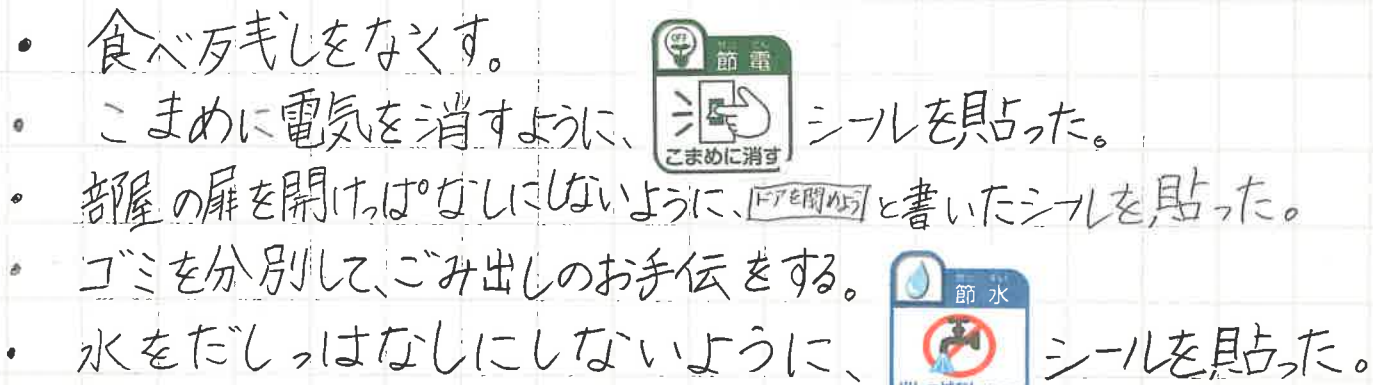 ・ 食べ残しをなくす。
・ こまめに電気を消すように、 OFF 節電 せつでん こまめに消す シールを貼った。
・ 部屋の扉を開けっぱなしにしないように、ドアを閉めようと書いたシールを貼った。
・ ゴミを分別して、ごみ出しのお手伝をする。
・ 水をだしっはなしにしないように、 節水 せっすい シールを貼った。